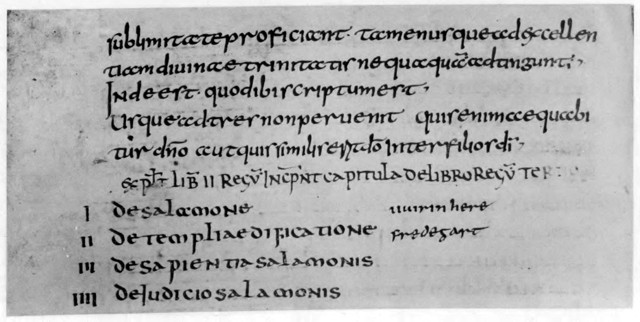 sublimitate proficiant· tamen usque ad excellen
tiam divinae trinitatis nequaquā adtingunt;
Inde est· quod ibi scriptum est,
Usque ad tres non pervenit quis enim aequabi
tur dño aut quis similis erit dō inter filios dī,
Expl̄ LIB̄ II REGŪ INCPNT CAPITULA DE LIBRO REGŪ TER
I de salamone uuirinhere
II de templi aedificatione fredegart
III de sapientia salamonis
IIII de judicio salamonis